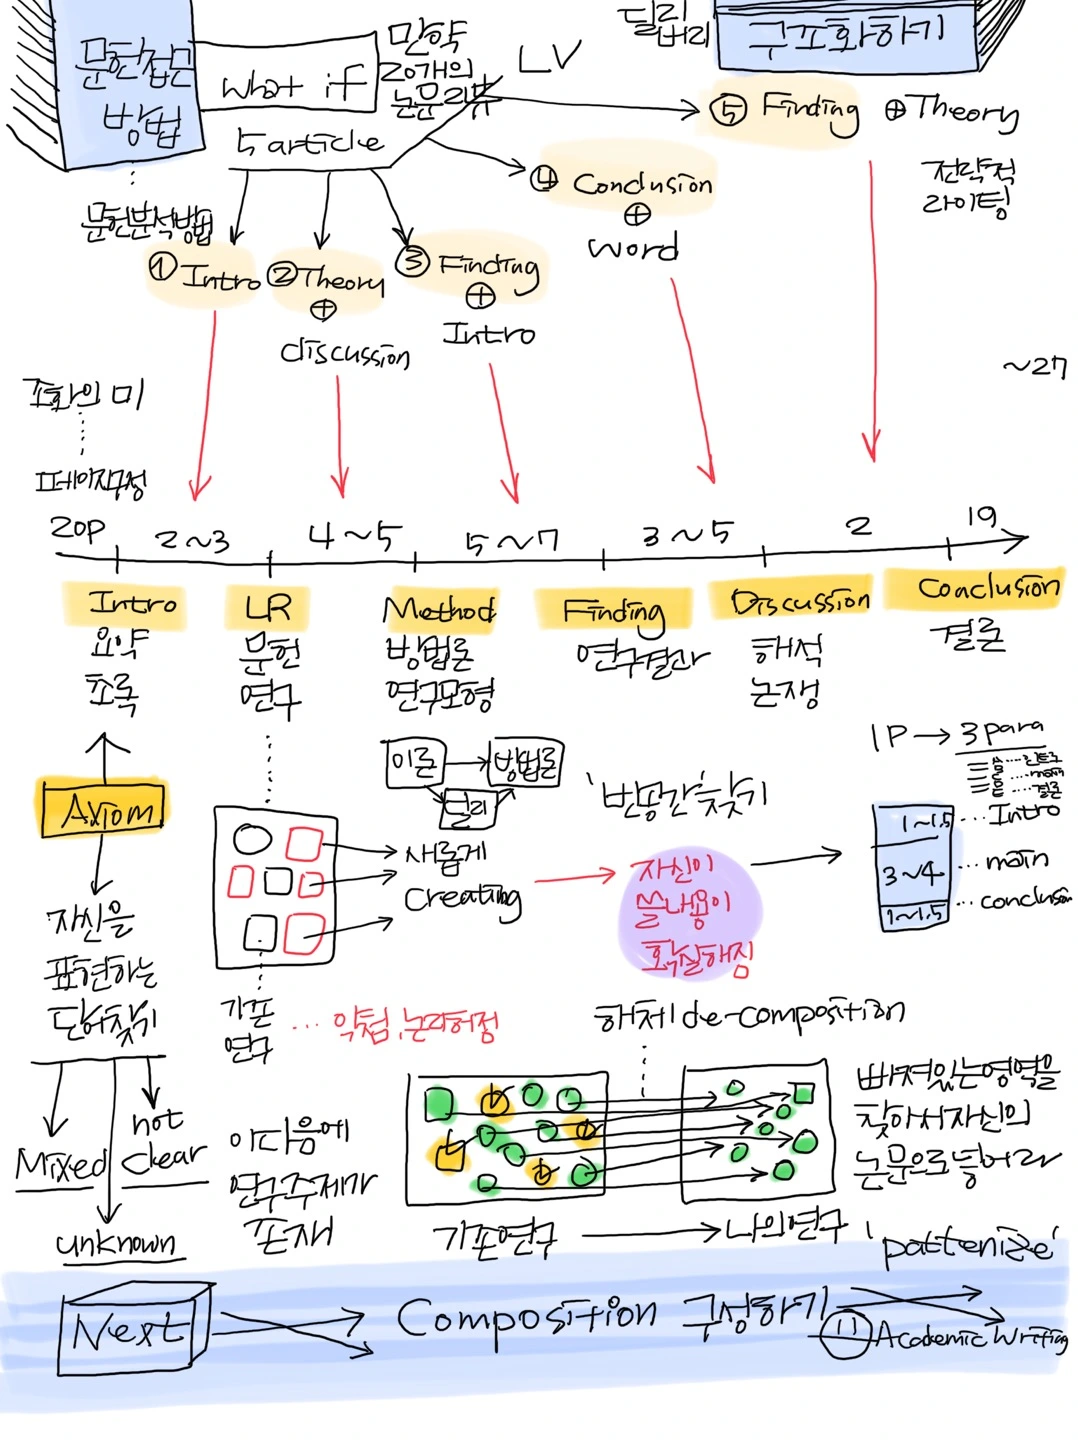 문헌접근
방법
what if
5 article
만약
20개의
논문 리뷰
LV
딜리
버리
구조화하기
⑤ Finding ⊕ Theory
전략적
라이팅
④ Conclusion
⊕
word
문헌분석방법
① Intro
② Theory
⊕
discussion
③ Finding
⊕
Intro
~27
조화의 미
페이지구성
20P
2~3
4~5
5~7
3~5
2
19
Intro
요약
초록
LR
문헌
연구
Method
방법론
연구모형
Finding
연구결과
Discussion
해석
논쟁
Conclusion
결론
Axiom
자신을
표현하는
단어찾기
Mixed
not
clear
unknown
이론
방법론
논리
새롭게
Creating
'빈공간'찾기
자신이
쓸내용이
확실해짐
1P → 3 para
main
결론
1~1.5 ... Intro
3~4 ... main
1~1.5 ... conclusion
기존
연구
... 약점, 논리허점
이다음에
연구주제가
존재
해체 / de-composition
기존연구 → 나의연구
빠져있는영역을
찾아서자신의
논문으로넣어라
'pattenize'
Next
Composition 구성하기
11 Academic Writing